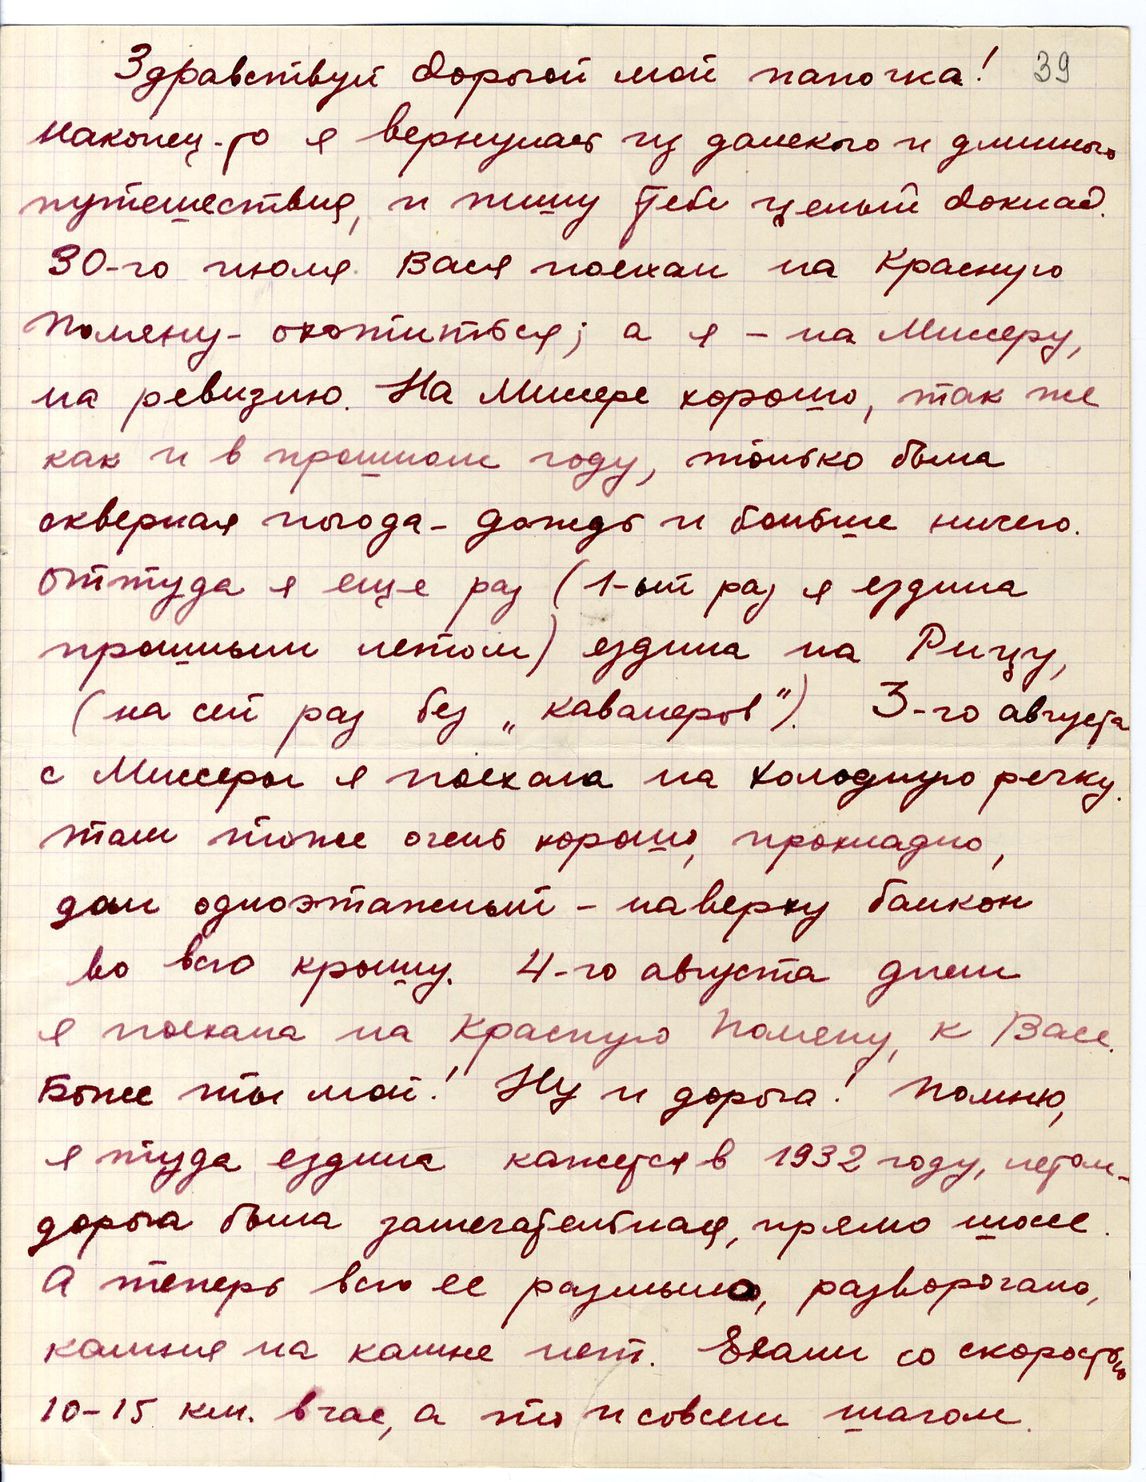 Здравствуй дорогой мой папочка! 39
Наконец-то я вернулась из далекого и длинного
путешествия, и пишу тебе целый доклад.
30-го июля Вася поехал на Красную
Поляну - охотиться; а я - на Мюссеру,
на ревизию. На Мюссере хорошо, так же
как и в прошлом году, только была
скверная погода - дождь и больше ничего.
Оттуда я еще раз (1-ый раз я ездила
прошлым летом) ездила на Рицу,
(на сей раз без „кавалеров"). 3-го августа
с Мюссеры я поехала на Холодную речку.
Там тоже очень хорошо, прохладно,
дом одноэтажный - наверху балкон
во всю крышу. 4-го августа днем
я поехала на Красную Поляну, к Васе.
Боже ты мой! Ну и дорога! Помню,
я туда ездила кажется в 1932 году, летом -
дорога была замечательная, прямо шоссе.
А теперь всю ее размыло, разворочало,
камня на камне нет. Ехали со скоростью
10-15 км. в час, а то и совсем шагом.